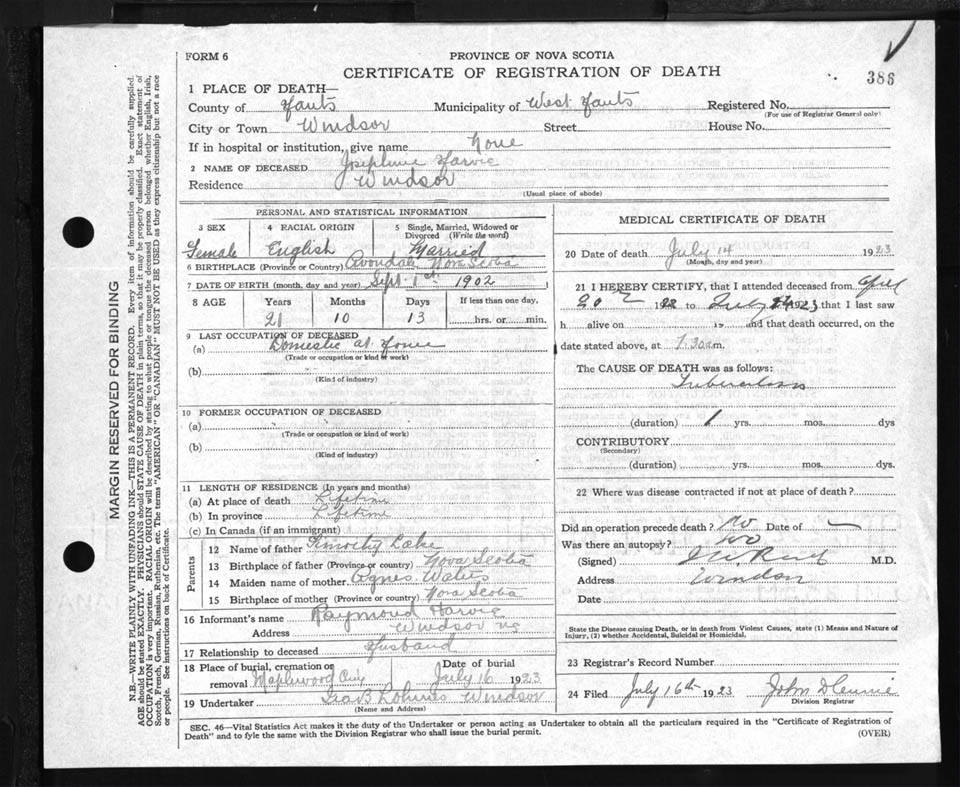 FORM 6
PROVINCE OF NOVA SCOTIA
CERTIFICATE OF REGISTRATION OF DEATH
386
1 PLACE OF DEATH—
County of Hants Municipality of West Hants Registered No.
(For use of Registrar General only)
City or Town Windsor Street House No.
If in hospital or institution, give name None
2 NAME OF DECEASED Josephine Harvie
Residence Windsor
(Usual place of abode)
PERSONAL AND STATISTICAL INFORMATION
3 SEX 4 RACIAL ORIGIN 5 Single, Married, Widowed or Divorced (Write the word)
Female English Married
6 BIRTHPLACE (Province or Country) Avondale Nova Scotia
7 DATE OF BIRTH (month, day and year) Sept. 1st 1902
8 AGE Years Months Days If less than one day.
21 10 13 hrs. or min.
9 LAST OCCUPATION OF DECEASED
(a) Domestic at Home
(Trade or occupation or kind of work)
(b)
(Kind of industry)
10 FORMER OCCUPATION OF DECEASED
(a)
(Trade or occupation or kind of work)
(b)
(Kind of industry)
11 LENGTH OF RESIDENCE (In years and months)
(a) At place of death Lifetime
(b) In province Lifetime
(c) In Canada (if an immigrant)
Parents
12 Name of father Timothy Lake
13 Birthplace of father (Province or country) Nova Scotia
14 Maiden name of mother Agnes Waters
15 Birthplace of mother (Province or country) Nova Scotia
16 Informant's name Raymond Harvie
Address Windsor NS
17 Relationship to deceased Husband
18 Place of burial, cremation or removal Maplewood Date of burial July 16 1923
19 Undertaker Windsor
(Name and Address)
MEDICAL CERTIFICATE OF DEATH
20 Date of death July 14 1923
(Month, day and year)
21 I HEREBY CERTIFY, that I attended deceased from April
20 19 to July 1923 that I last saw
h alive on 19 and that death occurred, on the
date stated above, at 7.30 a.m.
The CAUSE OF DEATH was as follows:
Tuberculosis
(duration) 1 yrs. mos. dys
CONTRIBUTORY
(Secondary)
(duration) yrs. mos. dys.
22 Where was disease contracted if not at place of death?
Did an operation precede death? No Date of
Was there an autopsy? No
(Signed) M.D.
Address Windsor
Date
State the Disease causing Death, or in death from Violent Causes, state (1) Means and Nature of
Injury, (2) whether Accidental, Suicidal or Homicidal.
23 Registrar's Record Number
24 Filed July 16th 1923 John
Division Registrar
SEC. 46—Vital Statistics Act makes it the duty of the Undertaker or person acting as Undertaker to obtain all the particulars required in the "Certificate of Registration of
Death" and to fyle the same with the Division Registrar who shall issue the burial permit.
(OVER)
MARGIN RESERVED FOR BINDING
N.B.—WRITE PLAINLY WITH UNFADING INK—THIS IS A PERMANENT RECORD. Every item of information should be carefully supplied.
AGE should be stated EXACTLY. PHYSICIANS should STATE CAUSE OF DEATH in plain terms, so that it may be properly classified. Exact statement of
OCCUPATION is very important. RACIAL ORIGIN will be described by stating to what people or tongue the deceased person belonged whether English, Irish,
Scotch, French, German, Russian, Ruthenian, etc. The terms "AMERICAN" OR "CANADIAN" MUST NOT BE USED as they express citizenship but not a race
or people. See instructions on back of Certificate.